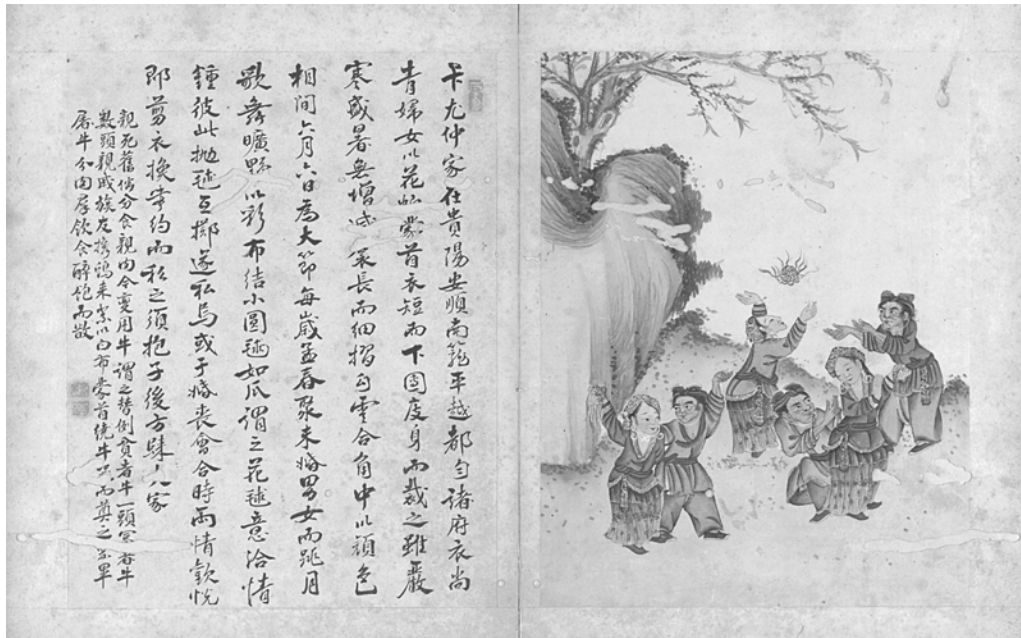 卡尤仲家在貴陽安順南籠平越都勻諸府衣尚
青婦女以花帕蒙首衣短而下圍度身而裁之雖嚴
寒盛暑無增减長而細摺勾雲合角中以頑色
相间六月六日為大節每歲孟春聚未婚男女而跳月
歌舞曠野以彩布結小圓毬如瓜謂之花毬意洽情
鍾彼此拋毬互擲遂私焉或于婚喪會合時兩情歡悅
即剪衣換帶約而私之須抱子後方家
親死舊俗分食親肉今變用牛謂之替例貧者牛一頭富者牛
數頭親戚族友携来祭以白布蒙首繞牛而奠之祭畢
屠牛分肉飲食醉飽而散